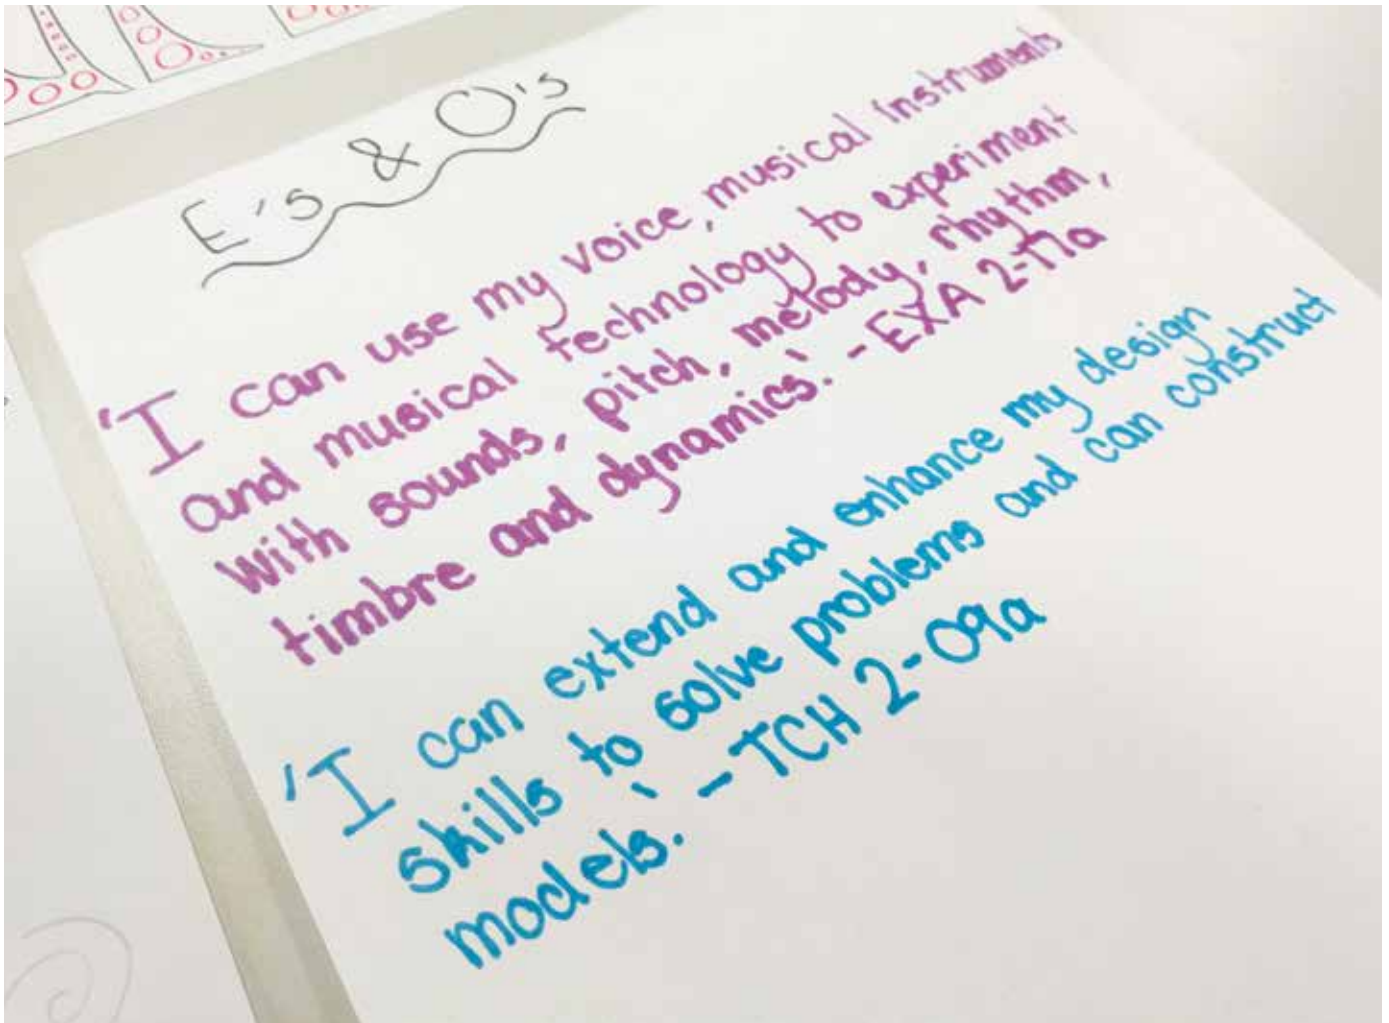 E's & O's
'I can use my voice, musical instruments
and musical technology to experiment
with sounds, pitch, melody, rhythm,
timbre and dynamics.' - EXA 2-17a
'I can extend and enhance my design
skills to solve problems and can construct
models.' - TCH 2-09a